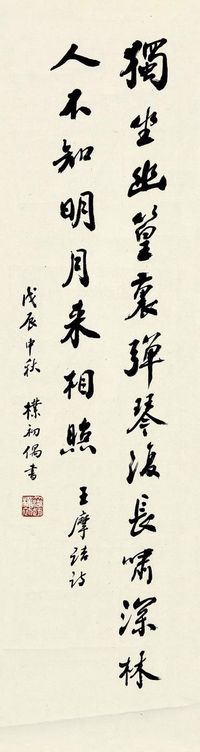 獨坐幽篁裏弹琴復長嘯深林
人不知明月来相照 王摩詰诗
戊辰中秋 樸初偶書